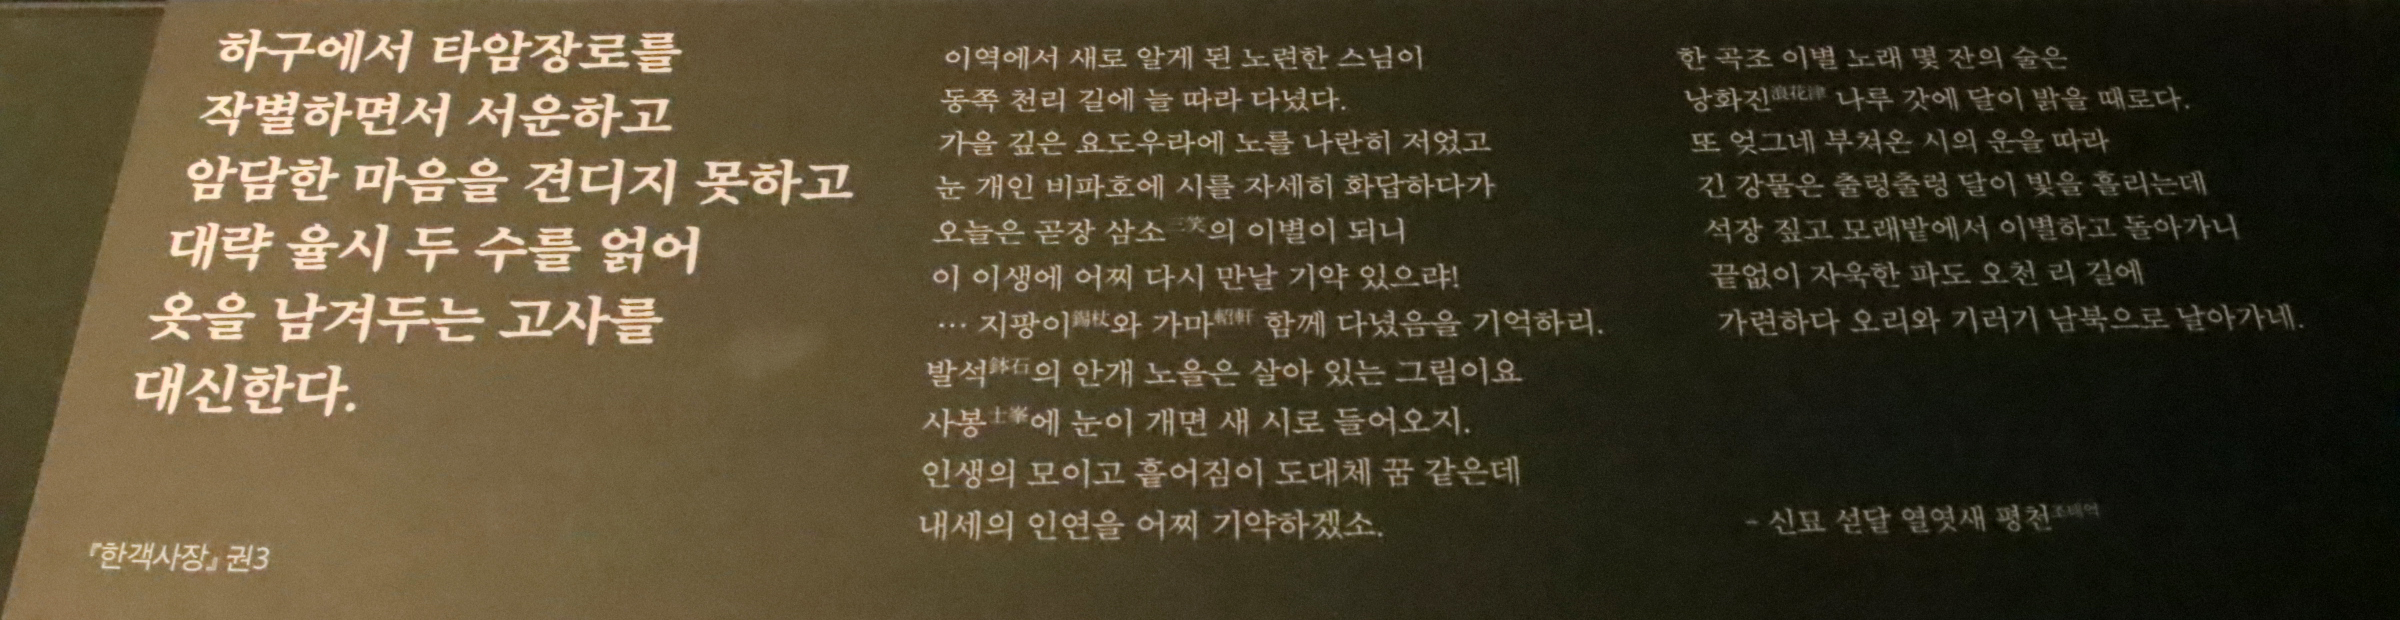 하구에서 타암장로를
작별하면서 서운하고
암담한 마음을 견디지 못하고
대략 율시 두 수를 얽어
옷을 남겨두는 고사를
대신한다.
『한객사장』 권3
이역에서 새로 알게 된 노련한 스님이
동쪽 천리 길에 늘 따라 다녔다.
가을 깊은 요도우라에 노를 나란히 저었고
눈 개인 비파호에 시를 자세히 화답하다가
오늘은 곧장 삼소三笑의 이별이 되니
이 이생에 어찌 다시 만날 기약 있으랴!
… 지팡이錫杖와 가마軺軒 함께 다녔음을 기억하리.
발석鉢石의 안개 노을은 살아 있는 그림이요
사봉士峯에 눈이 개면 새 시로 들어오지.
인생의 모이고 흩어짐이 도대체 꿈 같은데
내세의 인연을 어찌 기약하겠소.
한 곡조 이별 노래 몇 잔의 술은
낭화진浪花津 나루 갓에 달이 밝을 때로다.
또 엊그네 부쳐온 시의 운을 따라
긴 강물은 출렁출렁 달이 빛을 흘리는데
석장 짚고 모래밭에서 이별하고 돌아가니
끝없이 자욱한 파도 오천 리 길에
가련하다 오리와 기러기 남북으로 날아가네.
- 신묘 섣달 열엿새 평천조태억